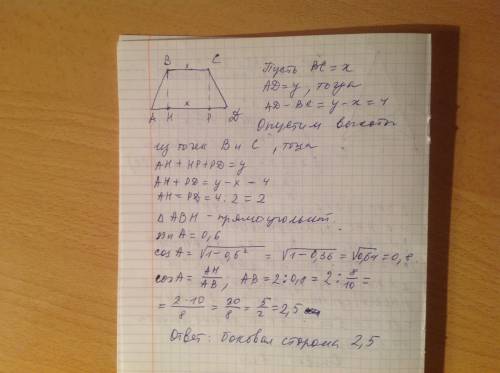 B C
x
x
A H P D
Пусть BC = x
AD = y, тогда
AD - BC = y - x = 4
Опустим высоты
из точек B и C, тогда
AH + HP + PD = y
AH + PD = y - x = 4
AH = PD = 4 : 2 = 2
△ ABH - прямоугольн.
sin A = 0,6
cos A = √1 - 0,6² = √1 - 0,36 = √0,64 = 0,8
cos A = AH/AB ; AB = 2 : 0,8 = 2 : 8/10 =
= 2·10/8 = 20/8 = 5/2 = 2,5
Ответ: боковая сторона 2,5